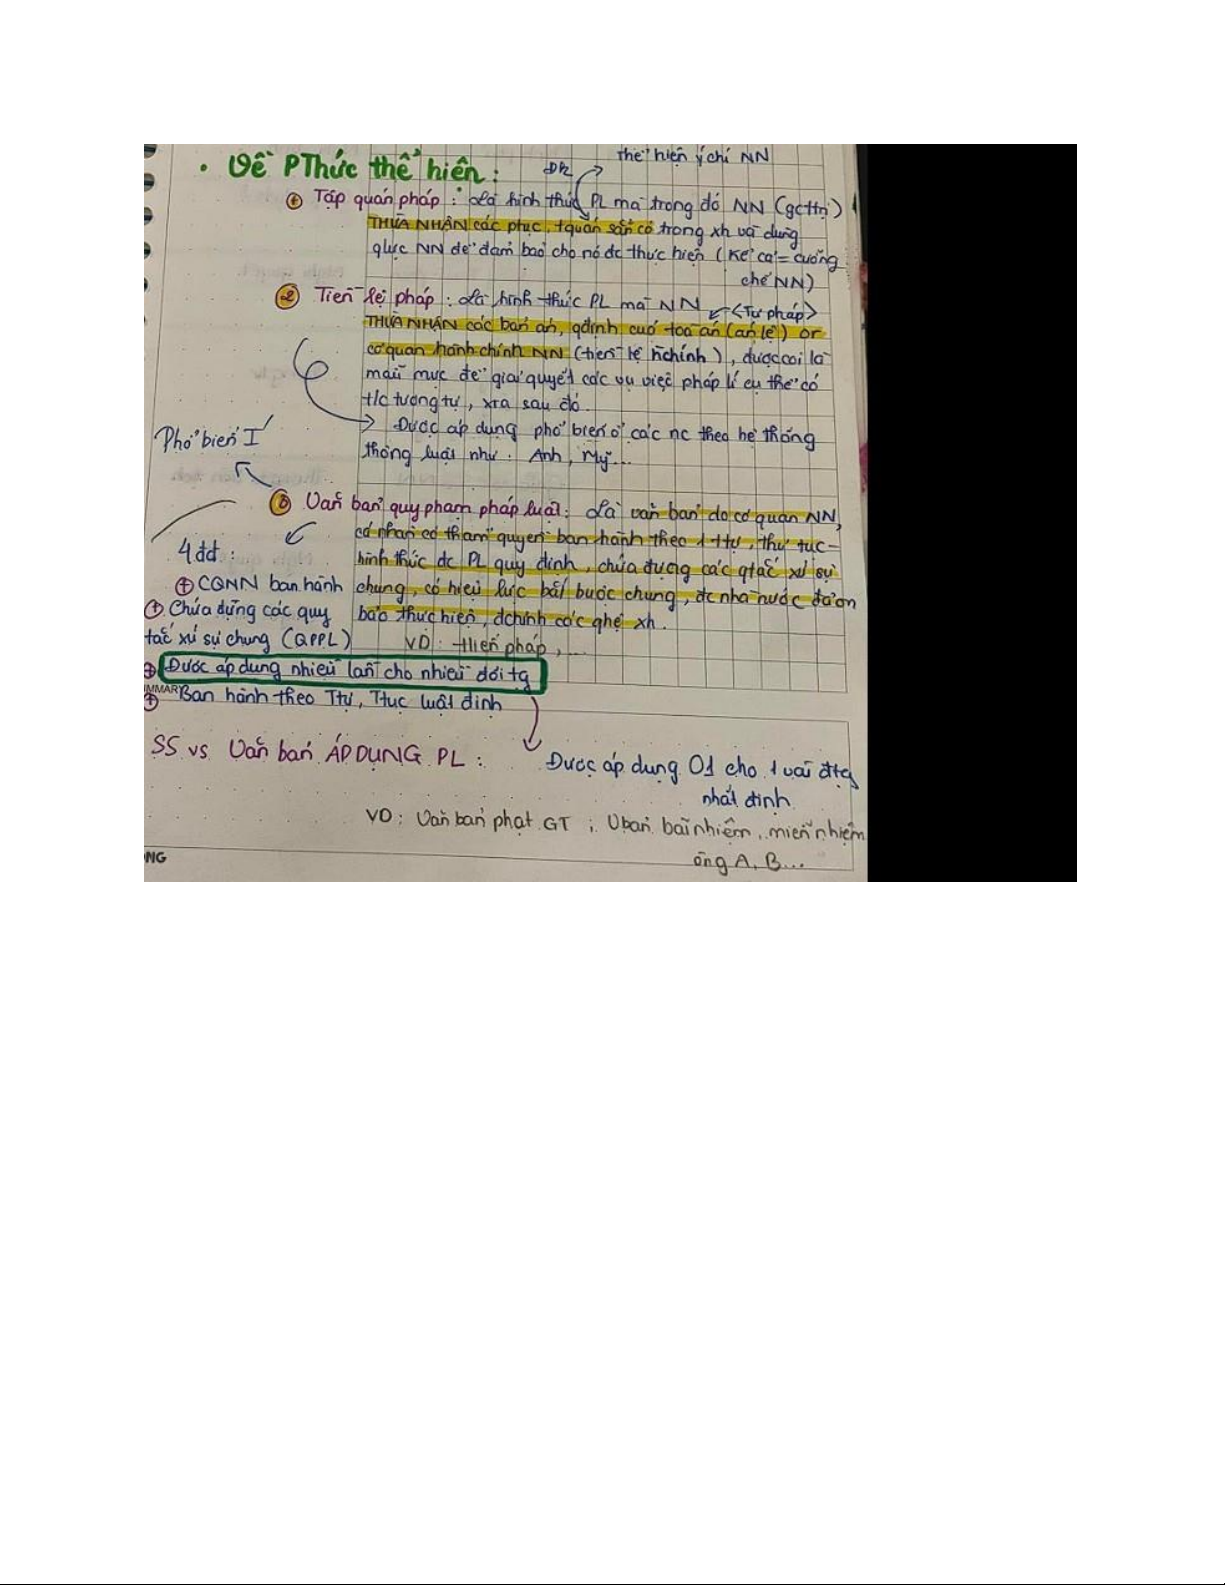 thể hiện ý chí NN
• Về PThức thể hiện:
ĐK
① Tập quán pháp: Là hình thức PL mà trong đó NN (gcttrị)
THỪA NHẬN các ptục, tquán sẵn có trong xh và dùng
qlực NN để đảm bảo cho nó đc thực hiện (kể cả = cưỡng
chế NN)
② Tiền lệ pháp: Là hình thức PL mà NN <Tư pháp>
THỪA NHẬN các bản án, qđịnh của toà án (án lệ) or
cơ quan hành chính NN (tiền lệ hchính), được coi là
mẫu mực để giải quyết các vụ việc pháp lí cụ thể có
t/c tương tự, xra sau đó.
→ Được áp dụng phổ biến ở các nc theo hệ thống
thông luật như: Anh, Mỹ...
Phổ biến I
③ Văn bản quy phạm pháp luật: Là văn bản do cơ quan NN,
cá nhân có thẩm quyền ban hành theo 1 ttự, thủ tục-
hình thức đc PL quy định, chứa đựng các qtắc xử sự
chung, có hiệu lực bắt buộc chung, đc nhà nước đảm
bảo thực hiện, đchỉnh các qhệ xh.
VD: Hiến pháp,...
4 đđ:
+ CQNN ban hành
+ Chứa đựng các quy
tắc xử sự chung (QPPL)
+ Được áp dụng nhiều lần cho nhiều đối tg
MMAR
+ Ban hành theo Ttự, Ttục luật định
SS vs Văn bản ÁP DỤNG PL:
Được áp dụng 01 cho 1 vài đtg
nhất định
VD: Văn bản phạt GT; Vbản bãi nhiệm, miễn nhiệm
ông A, B...
ONG